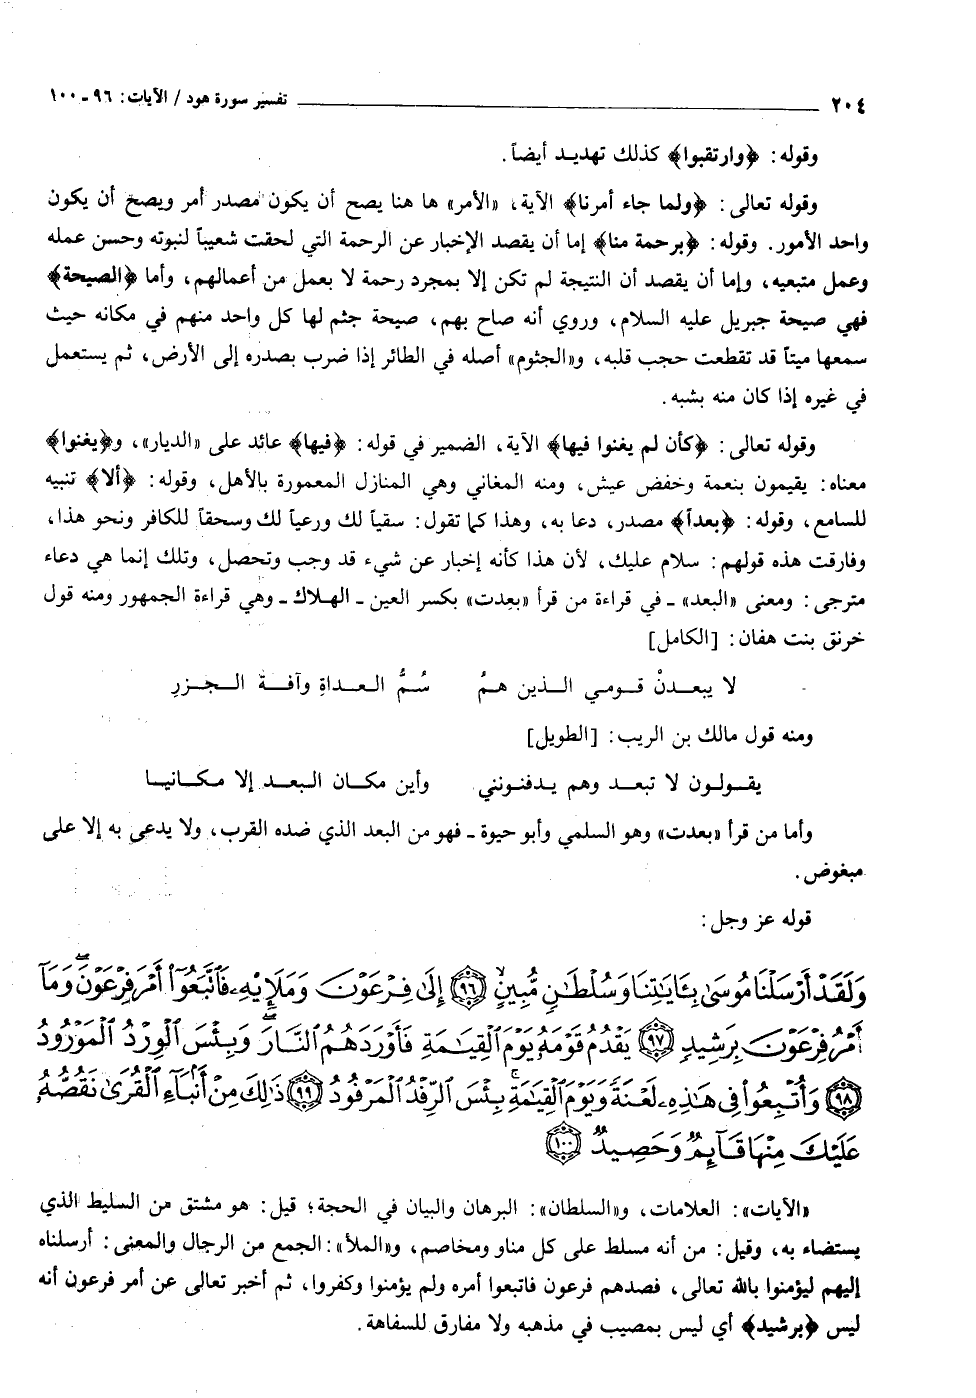 ٢٠٤ تفسير سورة هود / الآيات: ٩٦ ـ ١٠٠
وقوله: ﴿وارتقبوا﴾ كذلك تهديد أيضاً.
وقوله تعالى: ﴿ولما جاء أمرنا﴾ الآية، «الأمر» ها هنا يصح أن يكون مصدر أمر ويصح أن يكون
واحد الأمور. وقوله: ﴿برحمة منا﴾ إما أن يقصد الإخبار عن الرحمة التي لحقت شعيباً لنبوته وحسن عمله
وعمل متبعيه، وإما أن يقصد أن النتيجة لم تكن إلا بمجرد رحمة لا بعمل من أعمالهم، وأما ﴿الصيحة﴾
فهي صيحة جبريل عليه السلام، وروي أنه صاح بهم، صيحة جثم لها كل واحد منهم في مكانه حيث
سمعها ميتاً قد تقطعت حجب قلبه، و«الجثوم» أصله في الطائر إذا ضرب بصدره إلى الأرض، ثم يستعمل
في غيره إذا كان منه بشبه.
وقوله تعالى: ﴿كأن لم يغنوا فيها﴾ الآية، الضمير في قوله: ﴿فيها﴾ عائد على «الديار»، و﴿يغنوا﴾
معناه: يقيمون بنعمة وخفض عيش، ومنه المغاني وهي المنازل المعمورة بالأهل، وقوله: ﴿ألا﴾ تنبيه
للسامع، وقوله: ﴿بعداً﴾ مصدر، دعا به، وهذا كما تقول: سقياً لك ورعياً لك وسحقاً للكافر ونحو هذا،
وفارقت هذه قولهم: سلام عليك، لأن هذا كأنه إخبار عن شيء قد وجب وتحصل، وتلك إنما هي دعاء
مترجى: ومعنى «البعد» ـ في قراءة من قرأ «بعِدت» بكسر العين ـ الهلاك ـ وهي قراءة الجمهور ومنه قول
خرنق بنت هفان: [الكامل]
لا يبعدنْ قومي الذين همُ سُمُّ العداةِ وآفة الجزرِ
ومنه قول مالك بن الريب: [الطويل]
يقولون لا تبعد وهم يدفنونني وأين مكان البعد إلا مكانيا
وأما من قرأ «بعدت» وهو السلمي وأبو حيوة ـ فهو من البعد الذي ضده القرب، ولا يدعى به إلا على
مبغوض.
قوله عز وجل:
وَلَقَدْ أَرْسَلْنَا مُوسَىٰ بِـَٔايَـٰتِنَا وَسُلْطَـٰنٍ مُّبِينٍ ۙ ﴿٩٦﴾ إِلَىٰ فِرْعَوْنَ وَمَلَإِيْهِۦ فَٱتَّبَعُوٓا۟ أَمْرَ فِرْعَوْنَ ۖ وَمَآ
أَمْرُ فِرْعَوْنَ بِرَشِيدٍ ﴿٩٧﴾ يَقْدُمُ قَوْمَهُۥ يَوْمَ ٱلْقِيَـٰمَةِ فَأَوْرَدَهُمُ ٱلنَّارَ ۖ وَبِئْسَ ٱلْوِرْدُ ٱلْمَوْرُودُ
﴿٩٨﴾ وَأُتْبِعُوا۟ فِى هَـٰذِهِۦ لَعْنَةً وَيَوْمَ ٱلْقِيَـٰمَةِ ۚ بِئْسَ ٱلرِّفْدُ ٱلْمَرْفُودُ ﴿٩٩﴾ ذَٰلِكَ مِنْ أَنۢبَآءِ ٱلْقُرَىٰ نَقُصُّهُۥ
عَلَيْكَ مِنْهَا قَآئِمٌ وَحَصِيدٌ ﴿١٠٠﴾
«الآيات»: العلامات، و«السلطان»: البرهان والبيان في الحجة؛ قيل: هو مشتق من السليط الذي
يستضاء به، وقيل: من أنه مسلط على كل مناو ومخاصم، و«الملأ»: الجمع من الرجال والمعنى: أرسلناه
إليهم ليؤمنوا بالله تعالى، فصدهم فرعون فاتبعوا أمره ولم يؤمنوا وكفروا، ثم أخبر تعالى عن أمر فرعون أنه
ليس ﴿برشيد﴾ أي ليس بمصيب في مذهبه ولا مفارق للسفاهة.